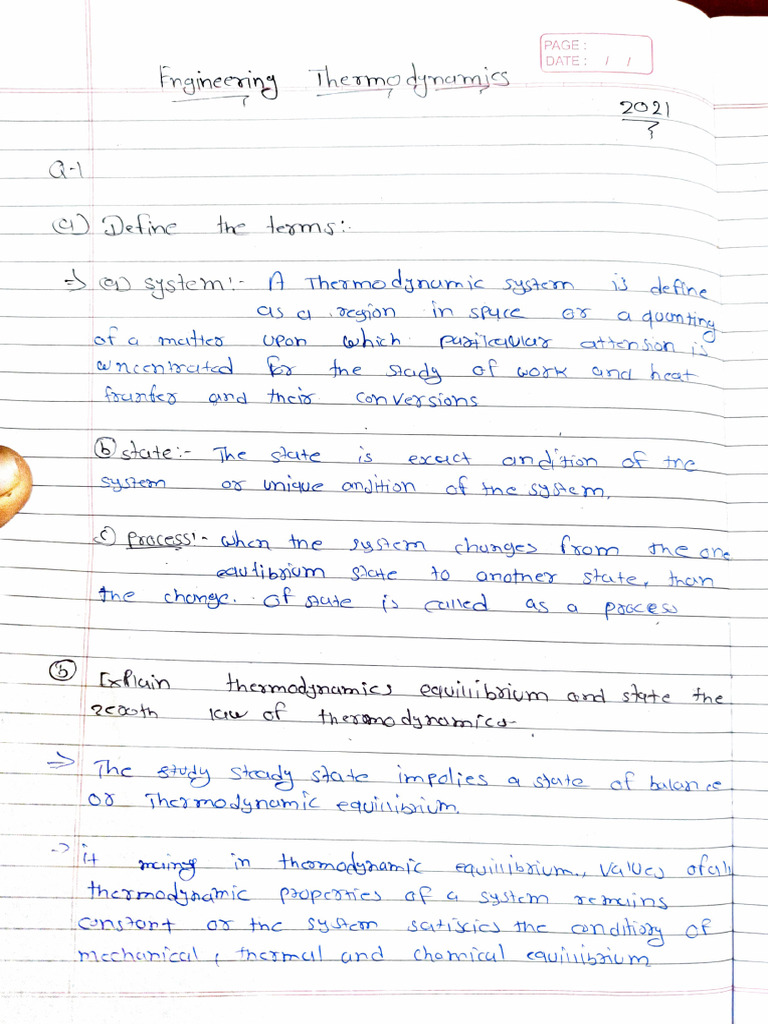 PAGE :
DATE : / /
Engineering Thermodynamics
2021
Q-1
(a) Define the terms:-
⇒ (a) system:- A Thermodynamic system is define
as a region in space or a quanting
of a matter upon which partikular attension is
concentrated for the study of work and heat
tranfer and their conversions
(b) state:- The state is exact condition of the
system or unique condition of the system.
(c) process:- when the system changes from the one
equilibrium state to another state, than
the change. of state is called as a process
(b) Explain thermodynamics equilibrium and state the
zeroth law of thermodynamics-
⇒ The study steady state impolies a state of balance
or Thermodynamic equilibrium.
→ it in thermodynamic equilibrium, values of all
thermodynamic properties of a system remains
constant or the system satiscies the conditiory of
mechanical, thermal and chemical equilibrium